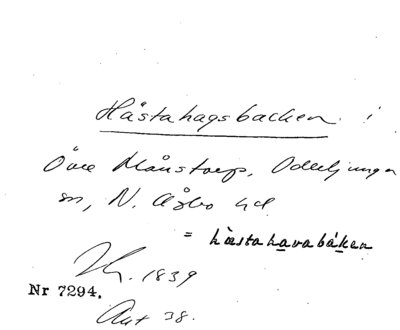 Hästahagsbacken i
Övre Månstorp, Oderljunga
sn, N. Åsbo hd
= hästahavabáken
1839
Nr 7294.
38.